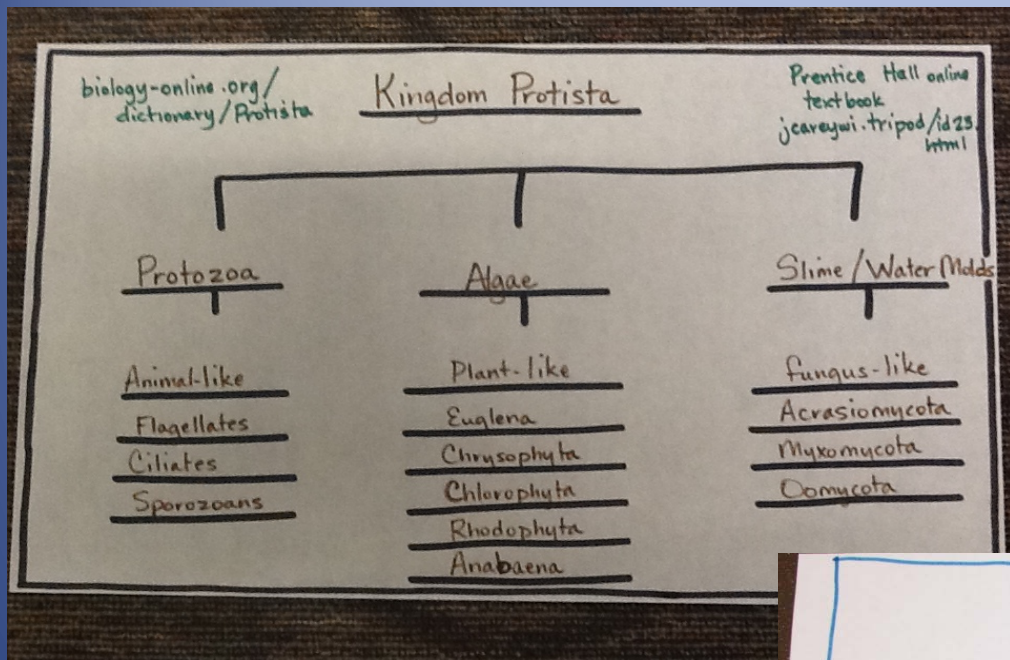 biology-online.org/
dictionary/Protista
Kingdom Protista
Prentice Hall online
textbook
jcareywi.tripod/id23.
html
Protozoa
Algae
Slime/Water Molds
Animal-like
Flagellates
Ciliates
Sporozoans
Plant-like
Euglena
Chrysophyta
Chlorophyta
Rhodophyta
Anabaena
fungus-like
Acrasiomycota
Myxomycota
Oomycota